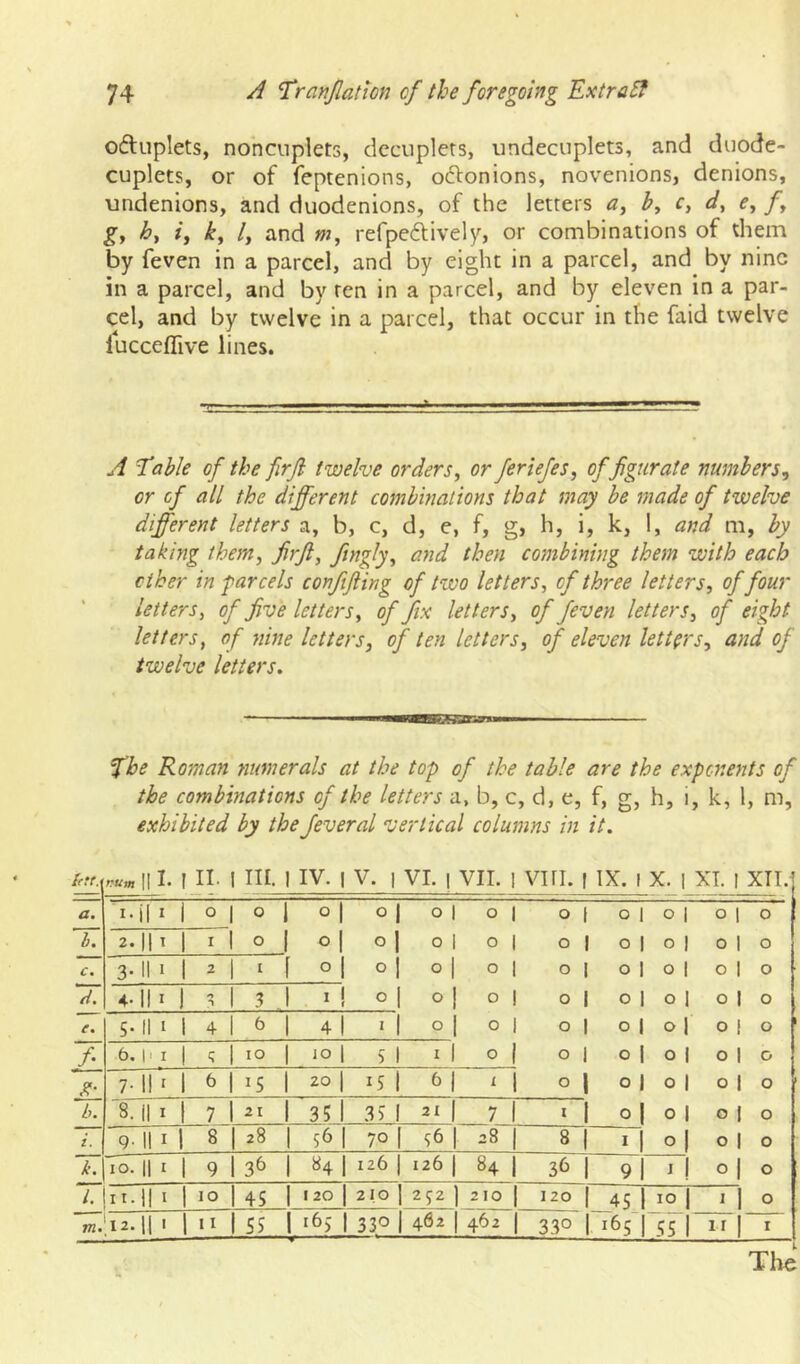 74 A Tranſlation of the foregoing Extract
octuplets, noncuplets, decuplets, undecuplets, and duode-
cuplets, or of ſeptenions, octonions, novenions, denions,
undenions, and duodenions, of the letters a, b, c, d, e, f,
g, h, i, k, l, and m, reſpectively, or combinations of them
by ſeven in a parcel, and by eight in a parcel, and by nine
in a parcel, and by ten in a parcel, and by eleven in a par-
cel, and by twelve in a parcel, that occur in the ſaid twelve
ſucceſſive lines.
A Table of the firſt twelve orders, or ſerieſes, of figurate numbers,
or of all the different combinations that may be made of twelve
different letters a, b, c, d, e, f, g, h, i, k, l, and m, by
taking them, firſt, ſingly, and then combining them with each
other in parcels conſiſting of two letters, of three letters, of four
letters, of five letters, of ſix letters, of ſeven letters, of eight
letters, of nine letters, of ten letters, of eleven letters, and of
twelve letters.
The Roman numerals at the top of the table are the exponents of
the combinations of the letters a, b, c, d, e, f, g, h, i, k, l, m,
exhibited by the ſeveral vertical columns in it.
lett. num || I. | II. | III. | IV. | V. | VI. | VII. | VIII. | IX. | X. | XI. | XII.
a. 1. || 1 | 0 | 0 | 0 | 0 | 0 | 0 | 0 | 0 | 0 | 0 | 0
b. 2. || 1 | 1 | 0 | 0 | 0 | 0 | 0 | 0 | 0 | 0 | 0 | 0
c. 3. || 1 | 2 | 1 | 0 | 0 | 0 | 0 | 0 | 0 | 0 | 0 | 0
d. 4. || 1 | 3 | 3 | 1 | 0 | 0 | 0 | 0 | 0 | 0 | 0 | 0
e. 5. || 1 | 4 | 6 | 4 | 1 | 0 | 0 | 0 | 0 | 0 | 0 | 0
f. 6. || 1 | 5 | 10 | 10 | 5 | 1 | 0 | 0 | 0 | 0 | 0 | 0
g. 7. || 1 | 6 | 15 | 20 | 15 | 6 | 1 | 0 | 0 | 0 | 0 | 0
h. 8. || 1 | 7 | 21 | 35 | 35 | 21 | 7 | 1 | 0 | 0 | 0 | 0
i. 9. || 1 | 8 | 28 | 56 | 70 | 56 | 28 | 8 | 1 | 0 | 0 | 0
k. 10. || 1 | 9 | 36 | 84 | 126 | 126 | 84 | 36 | 9 | 1 | 0 | 0
l. 11. || 1 | 10 | 45 | 120 | 210 | 252 | 210 | 120 | 45 | 10 | 1 | 0
m. 12. || 1 | 11 | 55 | 165 | 330 | 462 | 462 | 330 | 165 | 55 | 11 | 1
The